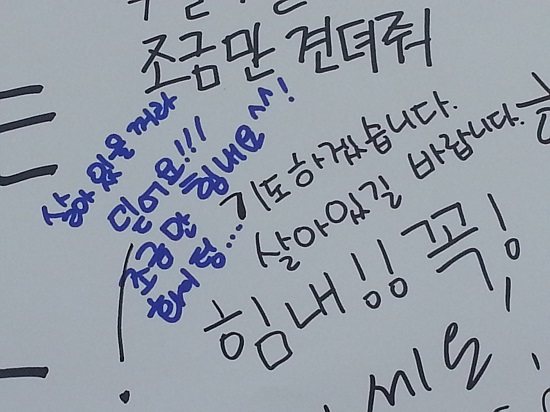 조금만 견뎌줘
살아 있을 꺼라
믿어요!!!
조금만 힘내요^^!
화이팅...
기도하겠습니다.
살아있길 바랍니다.
힘내!!! 꼭!